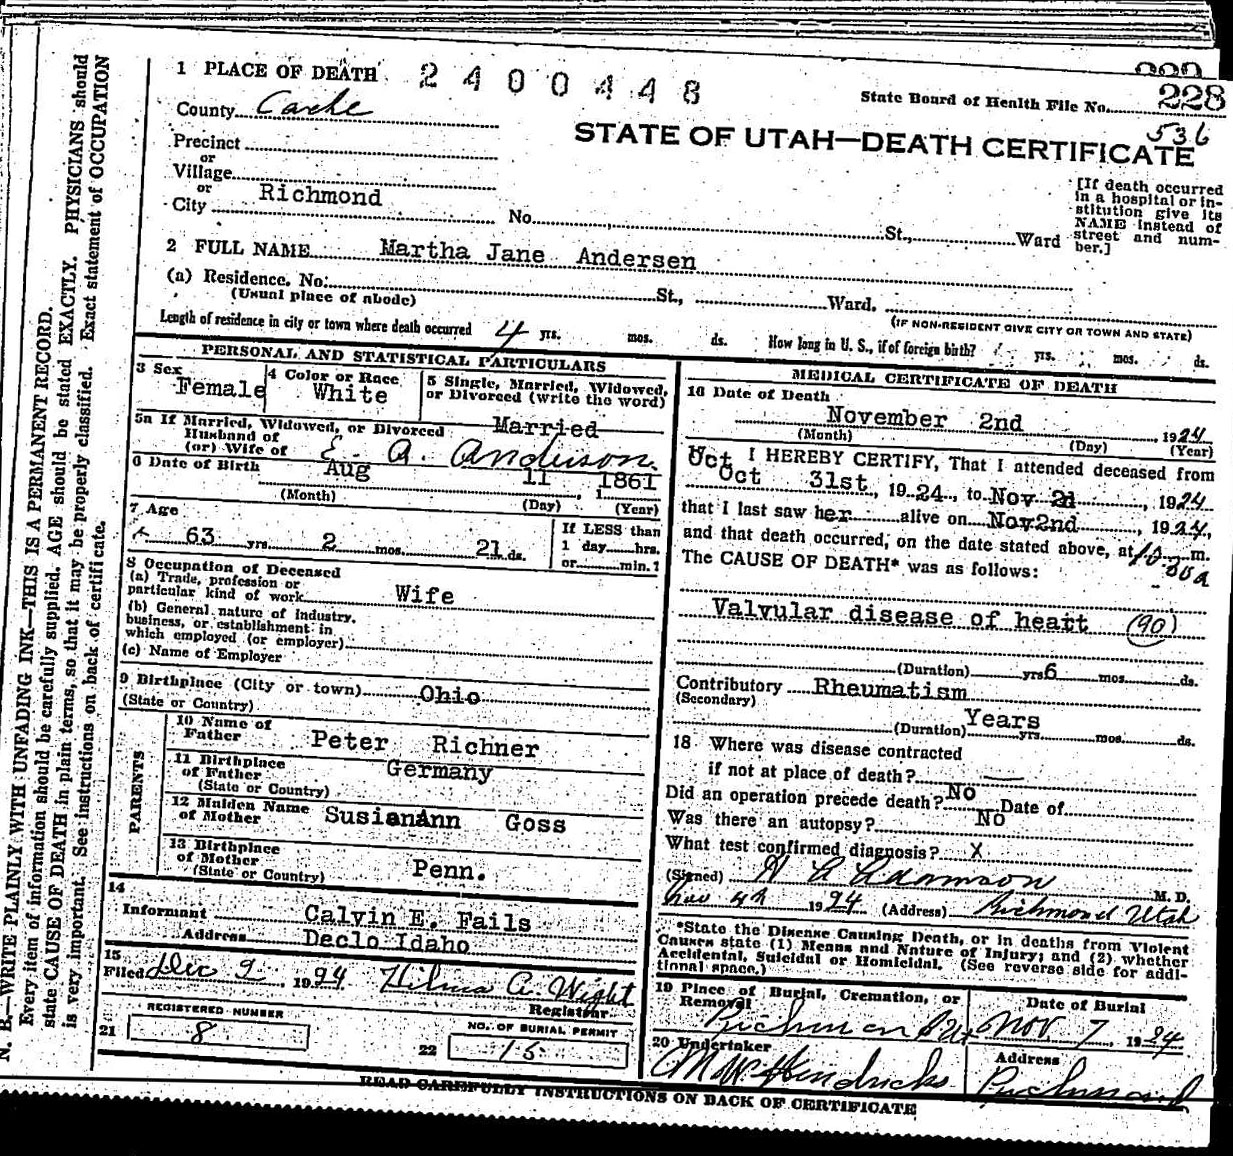 N. B.—WRITE PLAINLY WITH UNFADING INK—THIS IS A PERMANENT RECORD.
Every item of information should be carefully supplied. AGE should be stated EXACTLY. PHYSICIANS should
state CAUSE OF DEATH in plain terms, so that it may be properly classified. Exact statement of OCCUPATION
is very important. See instructions on back of certificate.
1 PLACE OF DEATH 2400448
State Board of Health File No. 228
536
County Cache
STATE OF UTAH—DEATH CERTIFICATE
Precinct
or
Village
or
City Richmond No. St., Ward
[If death occurred
in a hospital or in-
stitution give its
NAME instead of
street and num-
ber.]
2 FULL NAME Martha Jane Andersen
(a) Residence. No. St., Ward.
(Usual place of abode) (IF NON-RESIDENT GIVE CITY OR TOWN AND STATE)
Length of residence in city or town where death occurred 4 yrs. mos. ds. How long in U. S., if of foreign birth? yrs. mos. ds.
PERSONAL AND STATISTICAL PARTICULARS
3 Sex Female
4 Color or Race White
5 Single, Married, Widowed,
or Divorced (write the word)
Married
5a If Married, Widowed, or Divorced
Husband of
(or) Wife of E. A. Anderson.
6 Date of Birth Aug 11, 1861
(Month) (Day) (Year)
7 Age
63 yrs. 2 mos. 21 ds.
If LESS than
1 day hrs.
or min.?
8 Occupation of Deceased
(a) Trade, profession or
particular kind of work Wife
(b) General nature of industry,
business, or establishment in
which employed (or employer)
(c) Name of Employer
9 Birthplace (City or town) Ohio
(State or Country)
PARENTS
10 Name of
Father Peter Richner
11 Birthplace
of Father Germany
(State or Country)
12 Maiden Name
of Mother SusienAnn Goss
13 Birthplace
of Mother Penn.
(State or Country)
14
Informant Calvin E. Fails
Address Declo Idaho
15
Filed Dec 9, 1924 Hilma A. Wight
Registrar
REGISTERED NUMBER
21 8
NO. OF BURIAL PERMIT
22 15
MEDICAL CERTIFICATE OF DEATH
16 Date of Death
November 2nd, 1924
(Month) (Day) (Year)
Oct I HEREBY CERTIFY, That I attended deceased from
Oct 31st, 1924, to Nov 2d, 1924
that I last saw her alive on Nov 2nd, 1924,
and that death occurred, on the date stated above, at 10 m.
30a
The CAUSE OF DEATH* was as follows:
Valvular disease of heart (90)
(Duration) yrs 6 mos. ds.
Contributory Rheumatism
(Secondary)
Years
(Duration) yrs. mos. ds.
18 Where was disease contracted
if not at place of death?
Did an operation precede death? No Date of
Was there an autopsy? No
What test confirmed diagnosis? X
(Signed) W C Adamson M. D.
Nov 4th 1924 (Address) Richmond Utah
*State the Disease Causing Death, or in deaths from Violent
Causes state (1) Means and Nature of Injury; and (2) whether
Accidental, Suicidal or Homicidal. (See reverse side for addi-
tional space.)
19 Place of Burial, Cremation, or
Removal
Richmond Ut
Date of Burial
Nov. 7, 1924
20 Undertaker
M W Hendricks
Address
Richmond
READ CAREFULLY INSTRUCTIONS ON BACK OF CERTIFICATE